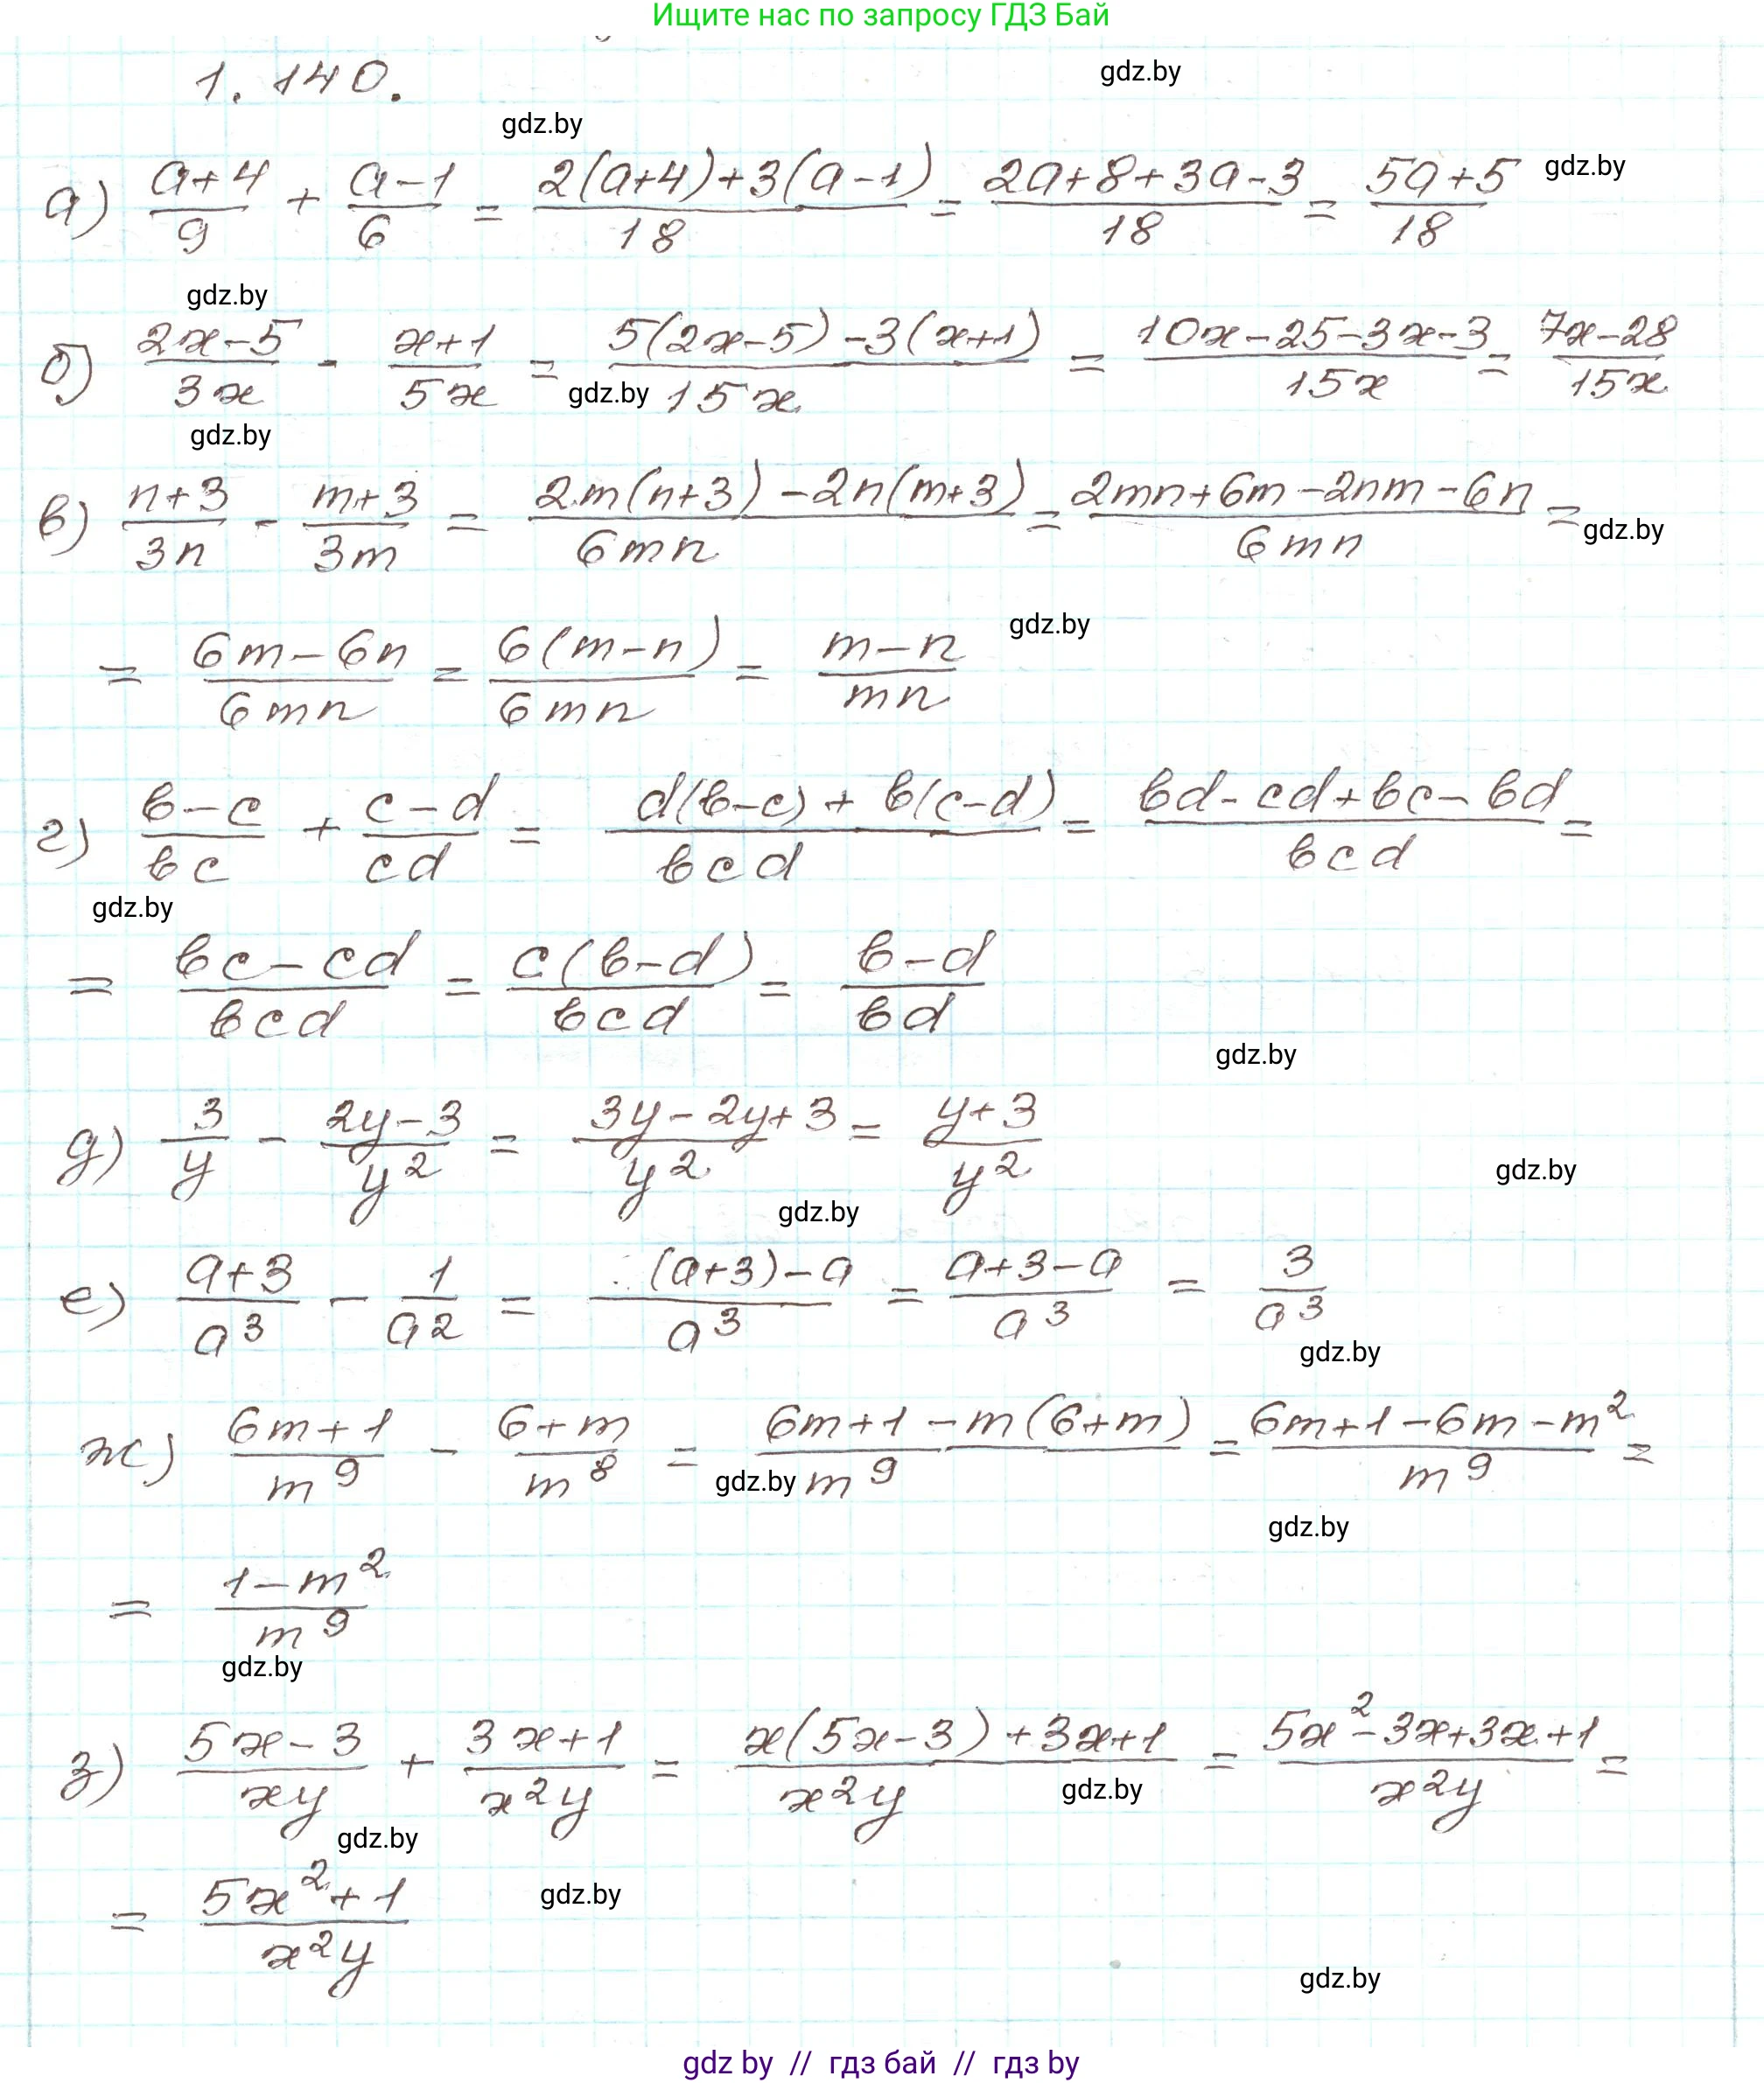 Ищите нас по запросу ГДЗ Бай
1.140.
gdz.by
gdz.by
а) (a+4)/9 + (a-1)/6 = (2(a+4)+3(a-1))/18 = (2a+8+3a-3)/18 = (5a+5)/18 gdz.by
gdz.by
б) (2x-5)/(3x) - (x+1)/(5x) = (5(2x-5)-3(x+1))/(15x) = (10x-25-3x-3)/(15x) = (7x-28)/(15x)
gdz.by
gdz.by
в) (n+3)/(3n) - (m+3)/(3m) = (2m(n+3)-2n(m+3))/(6mn) = (2mn+6m-2nm-6n)/(6mn) =
gdz.by
= (6m-6n)/(6mn) = (6(m-n))/(6mn) = (m-n)/(mn) gdz.by
г) (b-c)/(bc) + (c-d)/(cd) = (d(b-c)+b(c-d))/(bcd) = (bd-cd+bc-bd)/(bcd) =
gdz.by
= (bc-cd)/(bcd) = (c(b-d))/(bcd) = (b-d)/(bd)
gdz.by
д) 3/y - (2y-3)/y² = (3y-2y+3)/y² = (y+3)/y²
gdz.by
gdz.by
е) (a+3)/a³ - 1/a² = ((a+3)-a)/a³ = (a+3-a)/a³ = 3/a³
gdz.by
ж) (6m+1)/m⁹ - (6+m)/m⁸ = (6m+1-m(6+m))/m⁹ = (6m+1-6m-m²)/m⁹ =
gdz.by
gdz.by
= (1-m²)/m⁹
gdz.by
з) (5x-3)/(xy) + (3x+1)/(x²y) = (x(5x-3)+3x+1)/(x²y) = (5x²-3x+3x+1)/(x²y) =
gdz.by
gdz.by
= (5x²+1)/(x²y) gdz.by
gdz.by
gdz by // гдз бай // гдз by